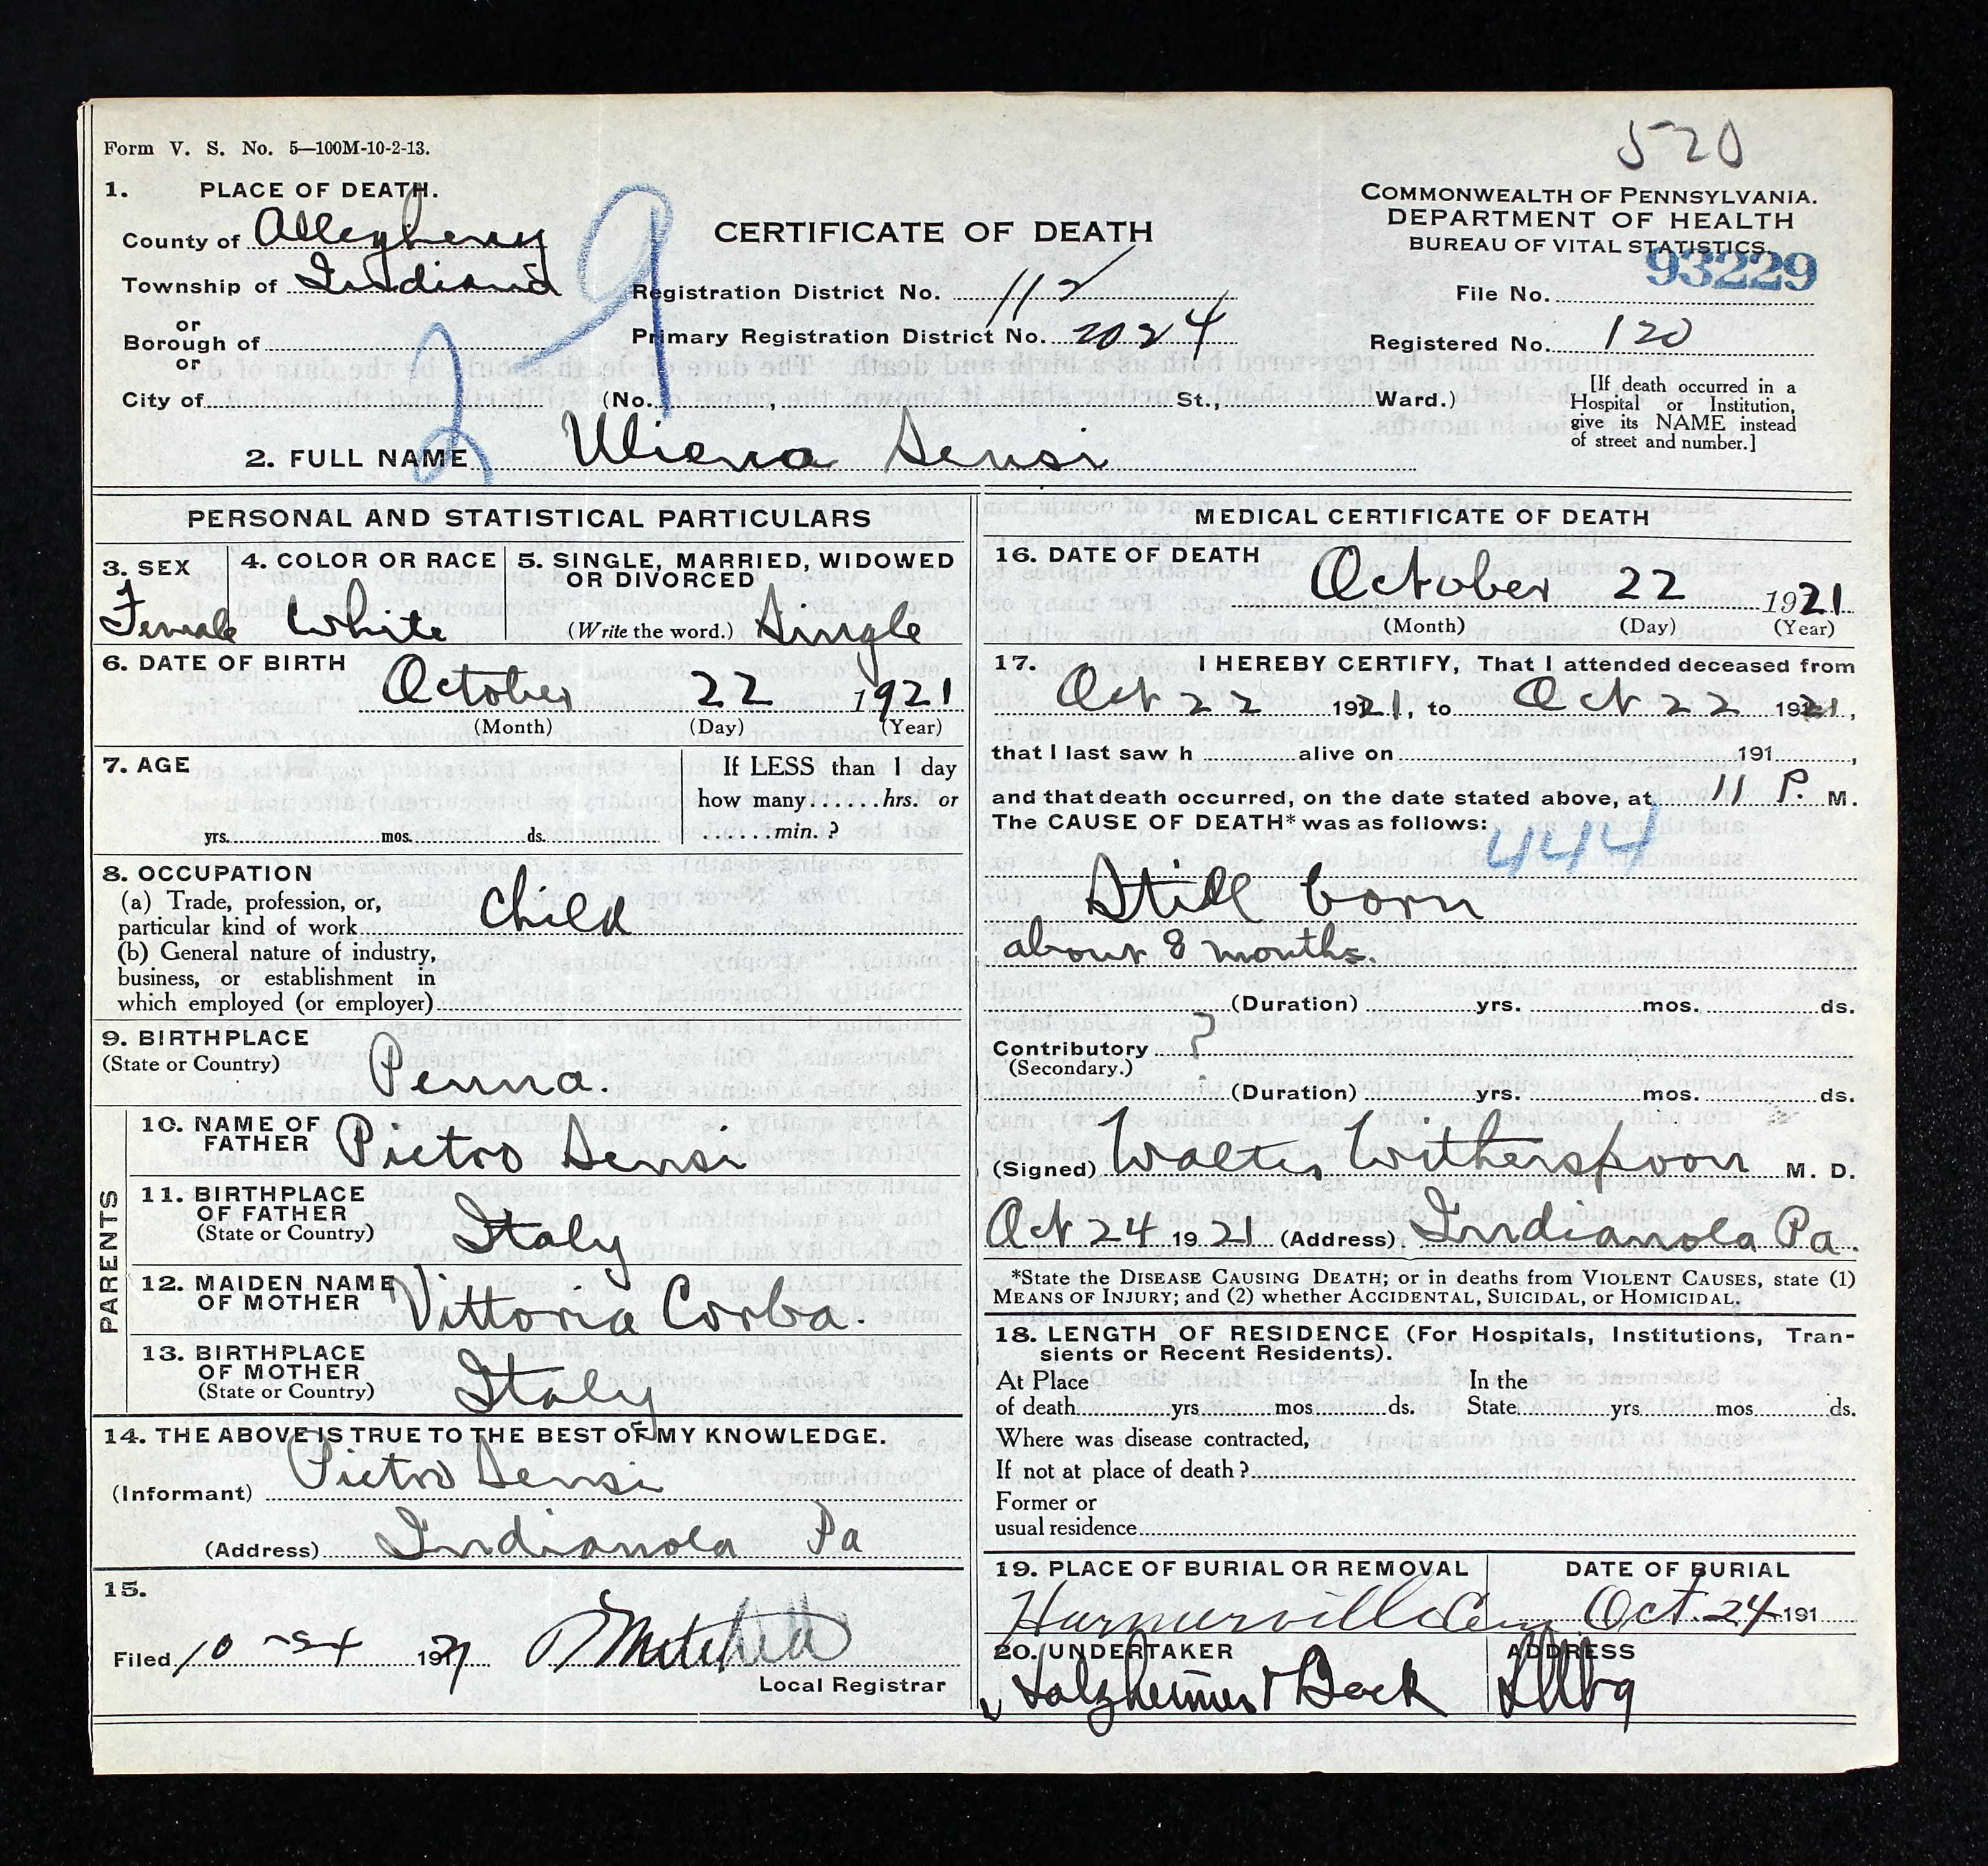 520
Form V. S. No. 5—100M-10-2-13.
1. PLACE OF DEATH.
County of Allegheny
Township of Indiana
or
Borough of
or
City of
2-9
CERTIFICATE OF DEATH
Registration District No. 112
Primary Registration District No. 2024
(No. , St., Ward.)
COMMONWEALTH OF PENNSYLVANIA.
DEPARTMENT OF HEALTH
BUREAU OF VITAL STATISTICS.
File No. 93229
Registered No. 120
[If death occurred in a
Hospital or Institution,
give its NAME instead
of street and number.]
2. FULL NAME Sensi
PERSONAL AND STATISTICAL PARTICULARS
3. SEX
Female
4. COLOR OR RACE
White
5. SINGLE, MARRIED, WIDOWED
OR DIVORCED
(Write the word.) Single
6. DATE OF BIRTH
October 22 1921
(Month) (Day) (Year)
7. AGE
yrs. mos. ds.
If LESS than 1 day
how many......hrs. or
......min.?
8. OCCUPATION
(a) Trade, profession, or,
particular kind of work child
(b) General nature of industry,
business, or establishment in
which employed (or employer)
9. BIRTHPLACE
(State or Country) Penna.
PARENTS
10. NAME OF
FATHER Pietro Sensi
11. BIRTHPLACE
OF FATHER
(State or Country) Italy
12. MAIDEN NAME
OF MOTHER Vittoria Corba.
13. BIRTHPLACE
OF MOTHER
(State or Country) Italy
14. THE ABOVE IS TRUE TO THE BEST OF MY KNOWLEDGE.
(Informant) Pietro Sensi
(Address) Indianola Pa
15.
Filed 10 1921 Mitchell
Local Registrar
MEDICAL CERTIFICATE OF DEATH
16. DATE OF DEATH
October 22 1921
(Month) (Day) (Year)
17. I HEREBY CERTIFY, That I attended deceased from
Oct 22 1921, to Oct 22 1921,
that I last saw h alive on 191 ,
and that death occurred, on the date stated above, at 11 P. M.
The CAUSE OF DEATH* was as follows:
444
Still born
about 8 months.
(Duration) yrs. mos. ds.
Contributory ?
(Secondary.)
(Duration) yrs. mos. ds.
(Signed) Walter Witherspoon M. D.
Oct 24 1921 (Address) Indianola Pa.
*State the DISEASE CAUSING DEATH; or in deaths from VIOLENT CAUSES, state (1)
MEANS OF INJURY; and (2) whether ACCIDENTAL, SUICIDAL, or HOMICIDAL.
18. LENGTH OF RESIDENCE (For Hospitals, Institutions, Tran-
sients or Recent Residents).
At Place In the
of death yrs. mos. ds. State yrs. mos. ds.
Where was disease contracted,
If not at place of death?
Former or
usual residence
19. PLACE OF BURIAL OR REMOVAL
Harmarville Cem
DATE OF BURIAL
Oct. 24 191
20. UNDERTAKER
ADDRESS